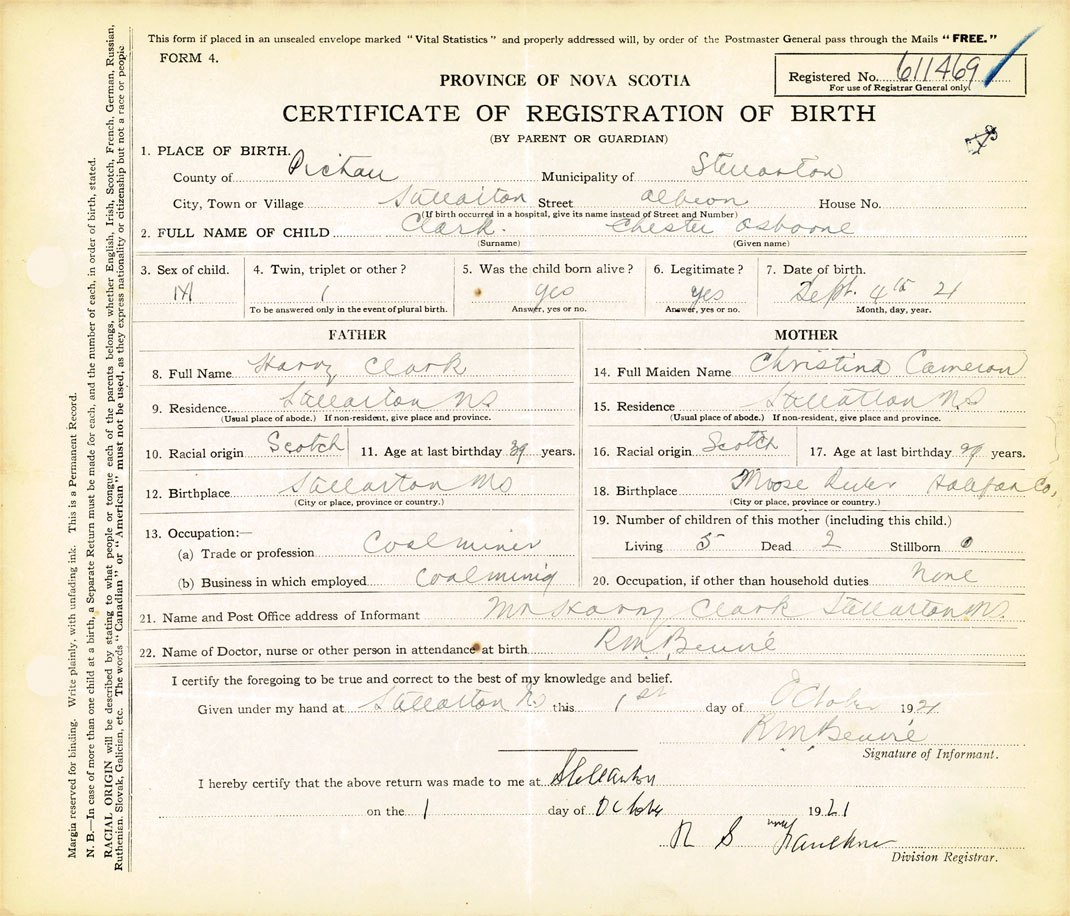 This form if placed in an unsealed envelope marked "Vital Statistics" and properly addressed will, by order of the Postmaster General pass through the Mails "FREE."
FORM 4.
Registered No. 611469
For use of Registrar General only
PROVINCE OF NOVA SCOTIA
CERTIFICATE OF REGISTRATION OF BIRTH
(BY PARENT OR GUARDIAN)
1. PLACE OF BIRTH.
County of Pictou Municipality of Stellarton
City, Town or Village Stellarton Street Albion House No.
(If birth occurred in a hospital, give its name instead of Street and Number)
2. FULL NAME OF CHILD Clark. Chester Osboone
(Surname) (Given name)
3. Sex of child. 4. Twin, triplet or other? 5. Was the child born alive? 6. Legitimate? 7. Date of birth.
M 1 yes yes Sept. 4th 21
To be answered only in the event of plural birth. Answer, yes or no. Answer, yes or no. Month, day, year.
FATHER
8. Full Name Harry Clark
9. Residence Stellarton NS
(Usual place of abode.) If non-resident, give place and province.
10. Racial origin Scotch 11. Age at last birthday 39 years.
12. Birthplace Stellarton NS
(City or place, province or country.)
13. Occupation:—
(a) Trade or profession Coal miner
(b) Business in which employed Coal mining
MOTHER
14. Full Maiden Name Christina Cameron
15. Residence Stellarton NS
(Usual place of abode.) If non-resident, give place and province.
16. Racial origin Scotch 17. Age at last birthday years.
18. Birthplace Moose River Halifax Co,
(City or place, province or country.)
19. Number of children of this mother (including this child.)
Living 5 Dead 2 Stillborn 0
20. Occupation, if other than household duties none
21. Name and Post Office address of Informant Mr Harry Clark Stellarton NS.
22. Name of Doctor, nurse or other person in attendance at birth R M Benvie
I certify the foregoing to be true and correct to the best of my knowledge and belief.
Given under my hand at Stellarton NS this 1st day of October 1921
R M Benvie
Signature of Informant.
I hereby certify that the above return was made to me at Stellarton
on the 1 day of October 1921
R S Faulkner
Division Registrar.
Margin reserved for binding. Write plainly, with unfading ink. This is a Permanent Record.
N. B.—In case of more than one child at a birth, a Separate Return must be made for each, and the number of each, in order of birth, stated.
RACIAL ORIGIN will be described by stating to what people or tongue each of the parents belongs, whether English, Irish, Scotch, French, German, Russian,
Ruthenian, Slovak, Galician, etc. The words "Canadian" or "American" must not be used, as they express nationality or citizenship but not a race or people